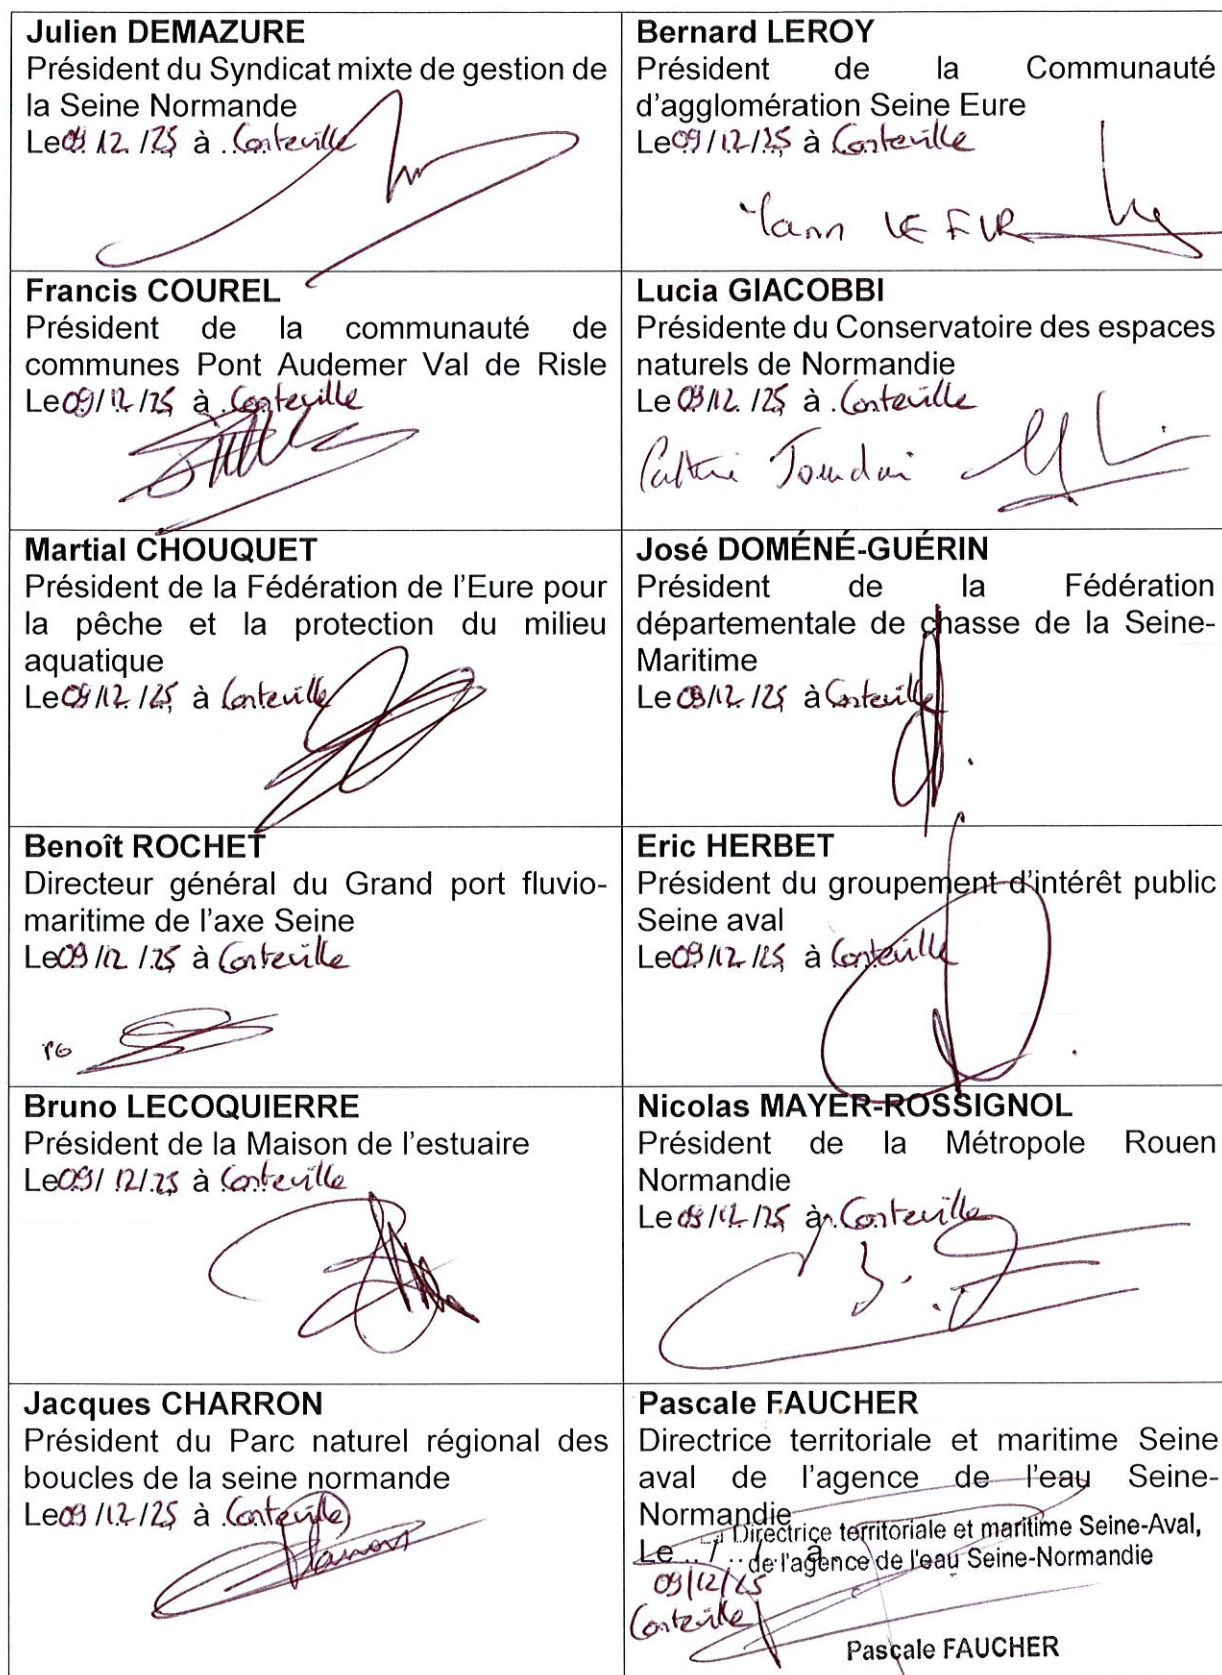 Julien DEMAZURE
Président du Syndicat mixte de gestion de
la Seine Normande
Le 09/12/25 à Conteville
Bernard LEROY
Président de la Communauté
d'agglomération Seine Eure
Le 09/12/25 à Conteville
Yann LE FUR
Francis COUREL
Président de la communauté de
communes Pont Audemer Val de Risle
Le 09/12/25 à Conteville
Lucia GIACOBBI
Présidente du Conservatoire des espaces
naturels de Normandie
Le 09/12/25 à Conteville
Martial CHOUQUET
Président de la Fédération de l'Eure pour
la pêche et la protection du milieu
aquatique
Le 09/12/25 à Conteville
José DOMÉNÉ-GUÉRIN
Président de la Fédération
départementale de chasse de la Seine-
Maritime
Le 09/12/25 à Conteville
Benoît ROCHET
Directeur général du Grand port fluvio-
maritime de l'axe Seine
Le 09/12/25 à Conteville
Eric HERBET
Président du groupement d'intérêt public
Seine aval
Le 09/12/25 à Conteville
Bruno LECOQUIERRE
Président de la Maison de l'estuaire
Le 09/12/25 à Conteville
Nicolas MAYER-ROSSIGNOL
Président de la Métropole Rouen
Normandie
Le 09/12/25 à Conteville
Jacques CHARRON
Président du Parc naturel régional des
boucles de la seine normande
Le 09/12/25 à Conteville
Pascale FAUCHER
Directrice territoriale et maritime Seine
aval de l'agence de l'eau Seine-
Normandie
La Directrice territoriale et maritime Seine-Aval,
Le ../.. à
de l'agence de l'eau Seine-Normandie
09/12/25
Conteville
Pascale FAUCHER